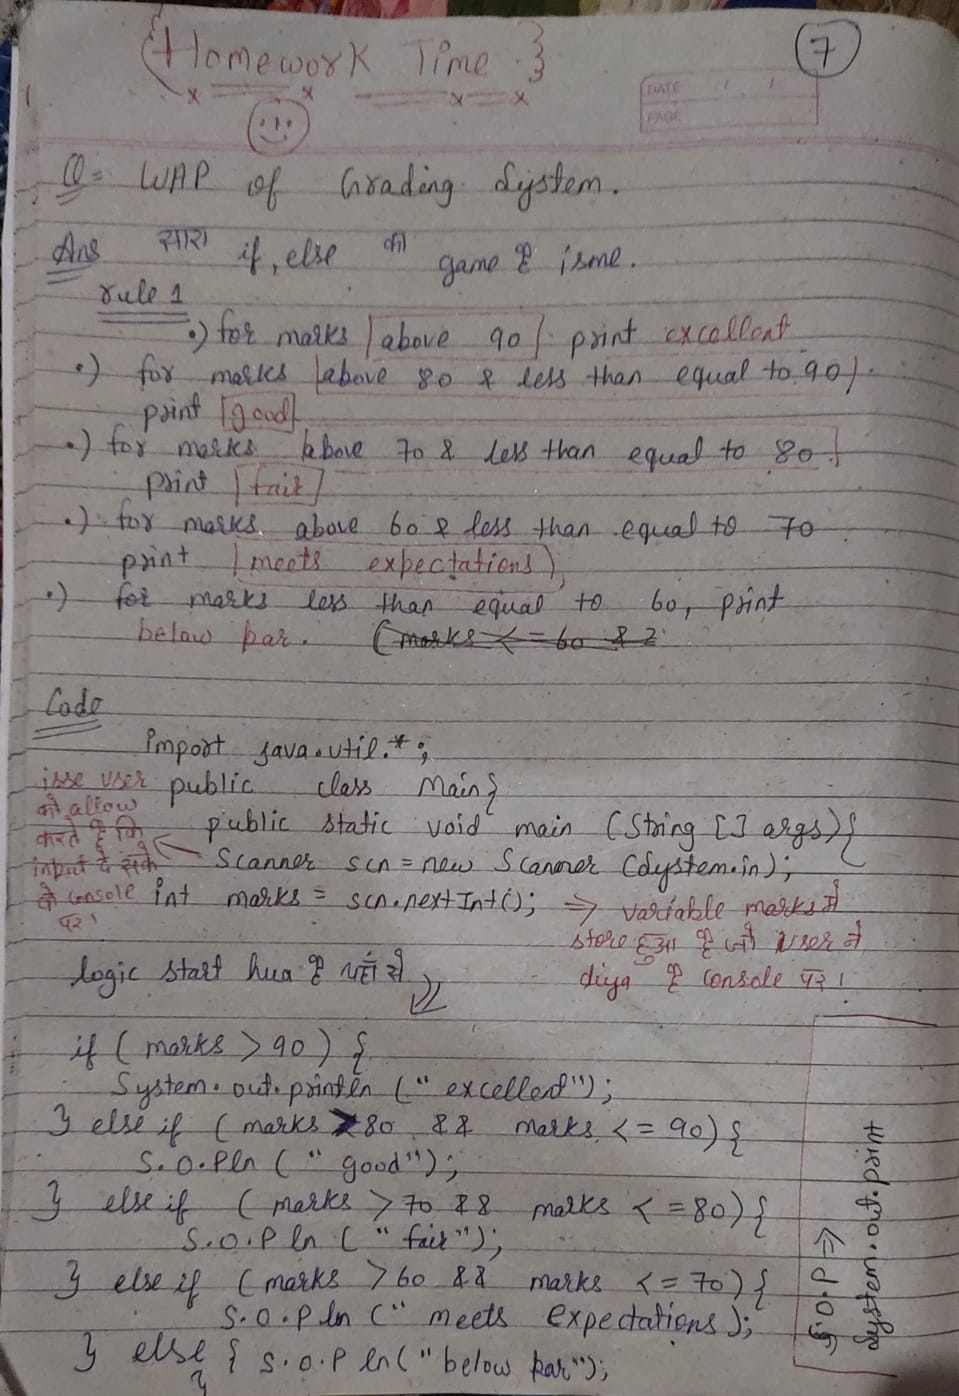 {Homework Time}
7
DATE / /
PAGE
Q= WAP of Grading System.
Ans सारा if, else का game है isme.
rule 1
•) for marks [above 90] print excellent
•) for marks [above 80 & less than equal to 90].
print [good]
•) for marks [above 70 & less than equal to 80.]
print [fair]
•) for marks above 60 & less than equal to 70
print [meets expectations]
•) for marks less than equal to 60, print
below par. (marks <=60 &&
Code
import java.util.*;
public class Main{
public static void main (String [] args){
Scanner scn = new Scanner (System.in);
int marks = scn.nextInt();
isse user
को allow
करते है कि
input दे सके
वो console
पर।
⇒ variable marks में
store हुआ है जो user ने
diya है console पर।
logic start hua है यहाँ से
if (marks > 90) {
System.out.println (" excellent");
} else if (marks > 80 && marks <= 90) {
S.O.Pln (" good");
} else if (marks > 70 && marks <= 80) {
S.O.Pln (" fair");
} else if (marks > 60 && marks <= 70) {
S.O.Pln (" meets expectations);
} else { S.O.Pln(" below par");
}
S.O.P ⇒
System.out.print